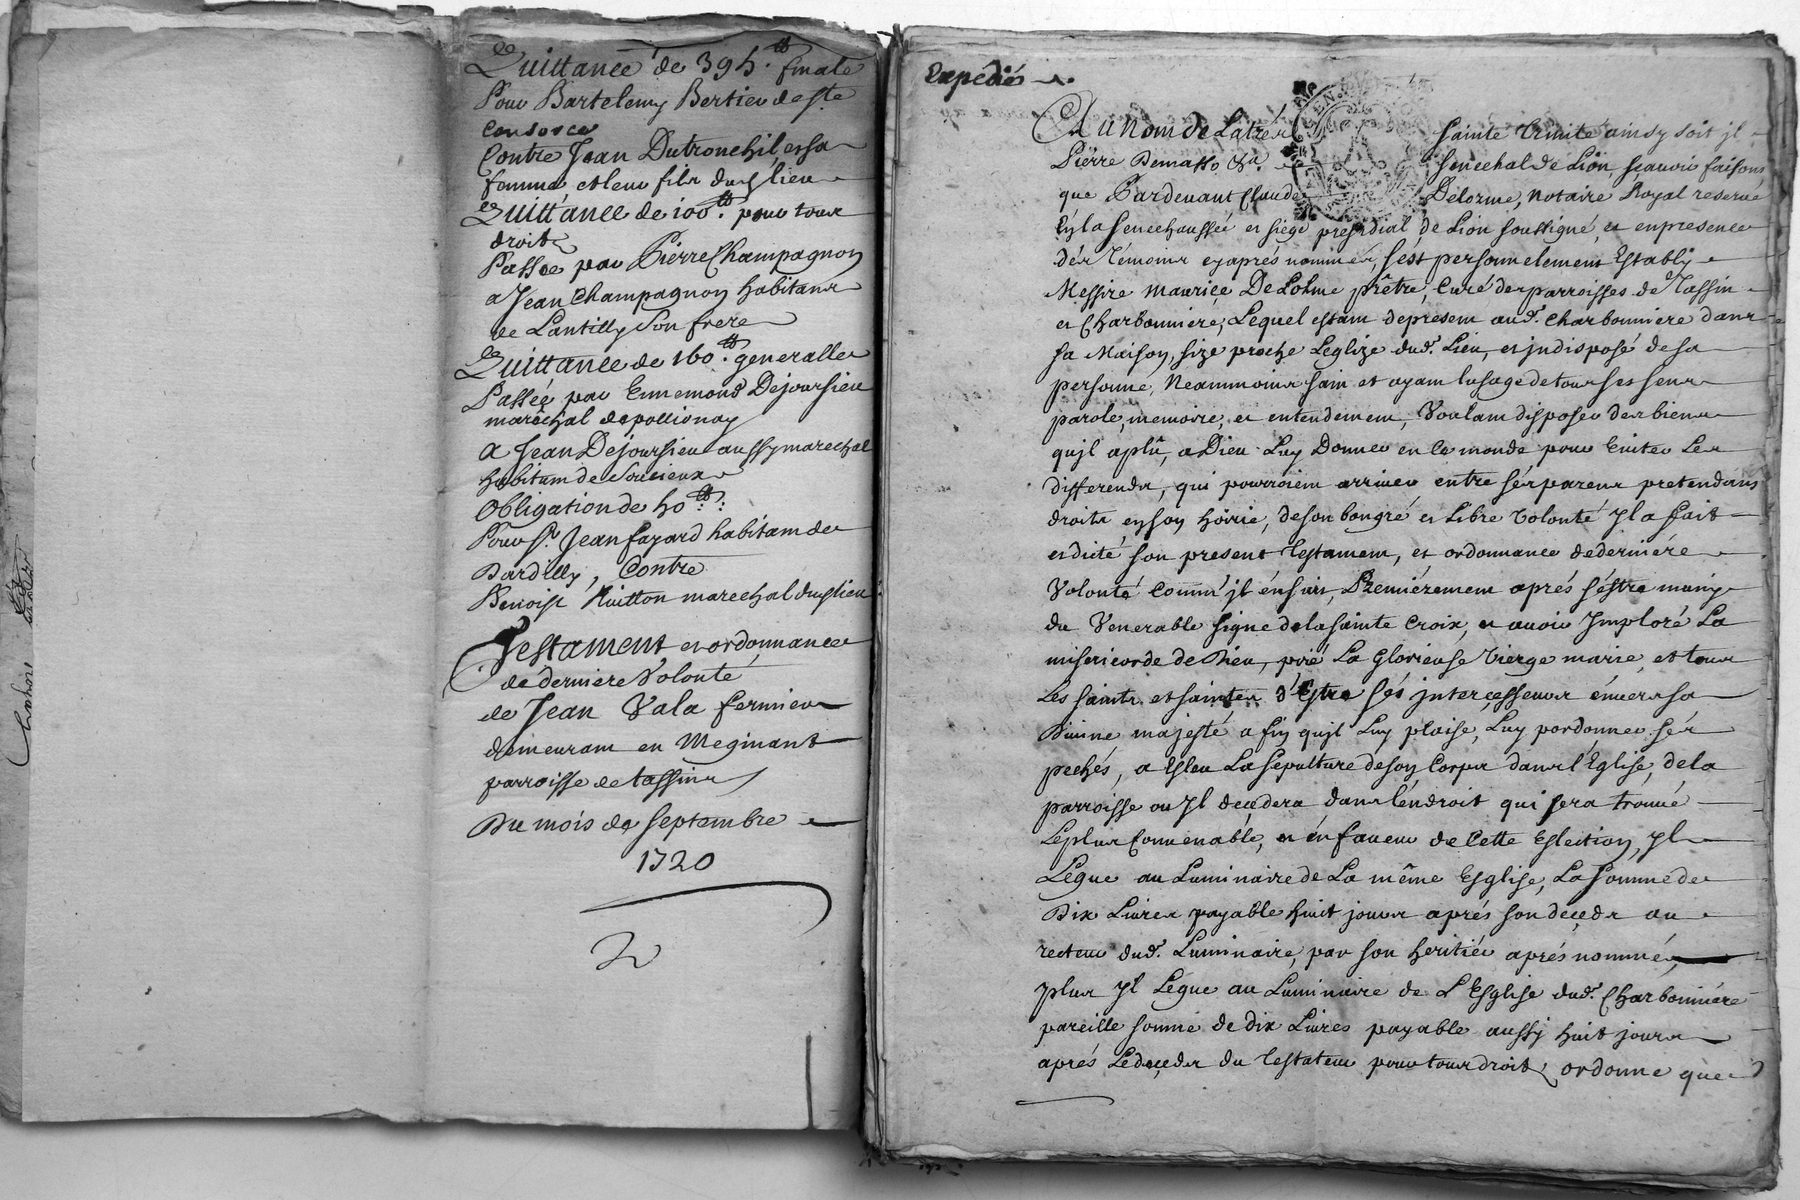 Quittance de 395.lt finale
Pour Bartelemy Bertier de Ste
Consorce
Contre Jean Dutronchil et sa
femme et leur fils dud lieu
Quittance de 100.lt pour tous
droits
Passee par Pierre Champagnon
a Jean Champagnon habitans
de Lantilly son frere
Quittance de 160.lt generalle
Passée par Ennemond Dejoursieu
maréchal de pollionay
a Jean Dejoursieu aussy marechal
habitant de Soucieux
Obligation de 50.lt
Pour Sr. Jean fayard habitant de
Dardilly, Contre
Benoist Guitton marechal dud lieu
Testament et ordonnance
de derniere Volonté
de Jean Vala fermier
demeurant en Meginant
parroisse de tassins
Du mois de Septembre
1720
Expédiés
Au Nom de La très sainte trinité ainsy soit jl
Pierre Demasso &a. senechal de Lion, scavoir faisons
que Pardevant Claude Delorme, Notaire Royal reservé
En la senechaussée et siege presidial de Lion soussigné, et en presence
dés témoins cyaprés nommés, s'ést personnelement Estably
Messire Maurice De Lolme prêtre, Curé des parroisses de Tassin
et Charbonniere, Lequel estant de present aud. Charbonniere dans
sa Maison, size proche Leglize dud. Lieu, et jndisposé de sa
personne, Neammoins sain et ayant lusage de tous ses sens
parole, memoire, et entendement, Voulant disposer des biens
qujl aplû, a Dieu Luy Donner en ce monde pour Eviter Les
differends, qui pourroient arriver entre sés parens pretendans
droits en son hoirie, de son bon gré et Libre Volonté Jl a fait
et dicté son present testament, et ordonnance de derniére
Volonté comm' jl énsuit, Premiérement aprés s'éstre muny
du Venerable signe de la sainte Croix, et avoir Jmploré La
misericorde de Dieu, prié La Glorieuse Vierge marie, et tous
Les saints et saintes d'Estre sés jntercesseurs énvers sa
Divine majesté a fin qujl Luy plaise, Luy pardonner sés
pechés, a Esleu La sepulture de son Corps dans l'Église, de la
parroisse ou Jl decedera dans l'éndroit qui sera trouvé
Le plus Convenable, et én faveur de Cette Eslection, Jl
Légue au Luminaire de La même Esglise, La somme de
Dix Livres payable huit jours aprés son decéds au
recteur dud. Luminaire, par son heritiér aprés nommé,
plus Jl Légue au Luminaire de L'Esglise dud. Charbonniére
pareille somme de dix Livres payable aussy huit jours
aprés Le decéds du testateur pour tous droits, ordonne que